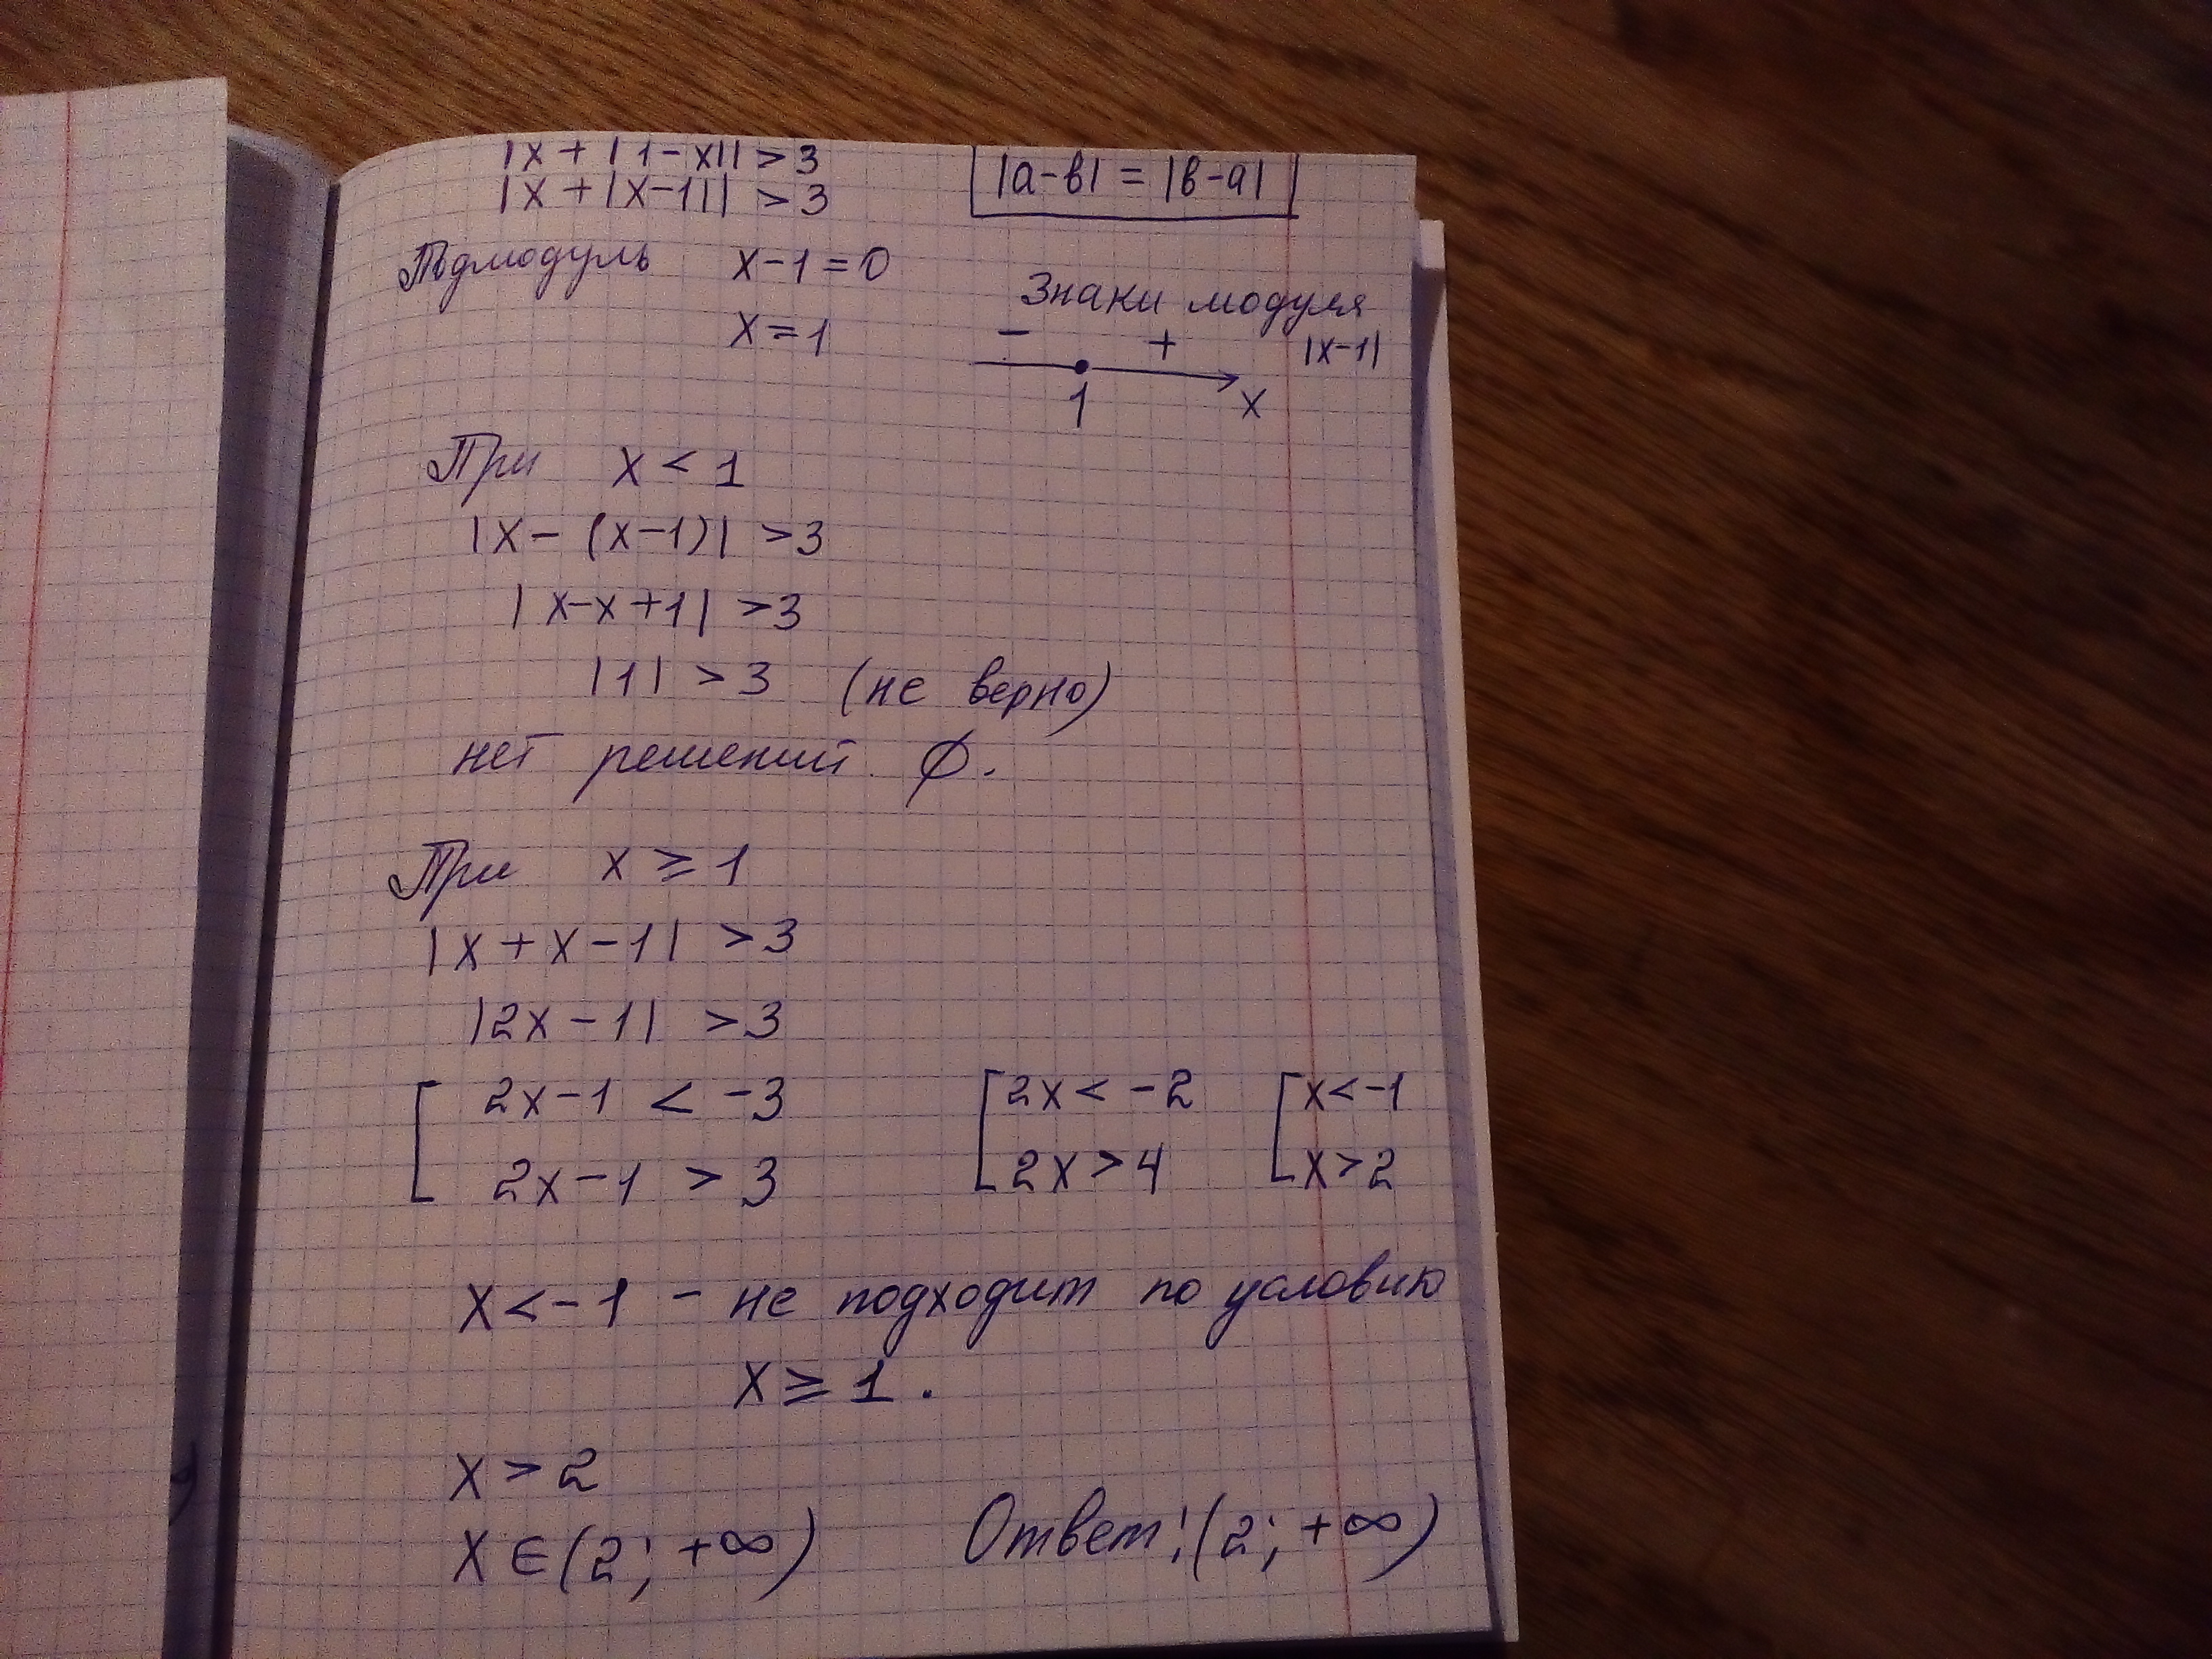 |x + |1 - x|| > 3
|x + |x-1|| > 3
|a-b| = |b-a|
Подмодуль x-1=0
x=1
Знаки модуля
- + |x-1|
1 x
При x < 1
|x - (x-1)| > 3
|x-x+1| > 3
|1| > 3 (не верно)
нет решений. ∅.
При x ≥ 1
|x + x - 1| > 3
|2x - 1| > 3
[ 2x-1 < -3 [ 2x < -2 [ x < -1
2x-1 > 3 2x > 4 x > 2
x < -1 - не подходит по условию
x ≥ 1.
x > 2
x ∈ (2; +∞) Ответ: (2; +∞)